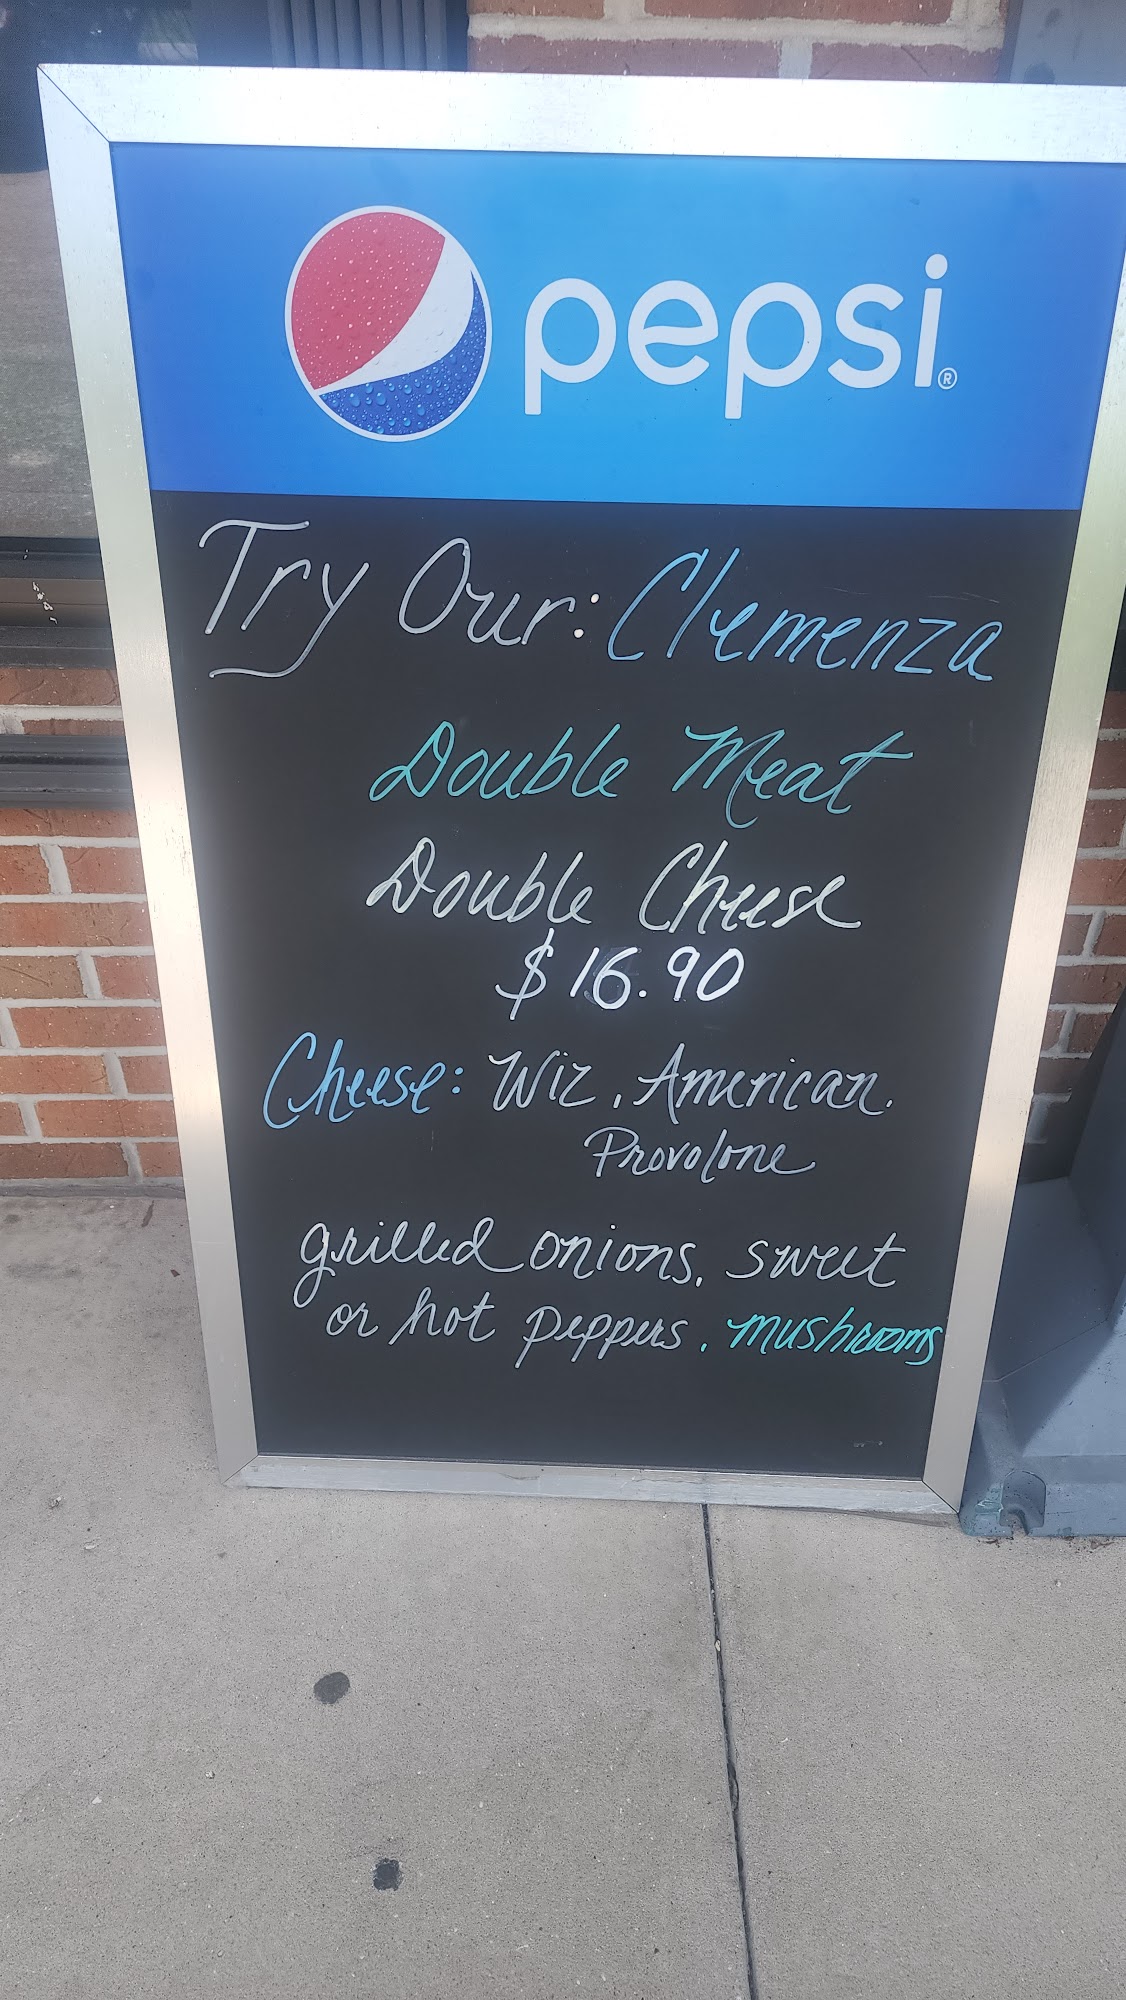 pepsi®
Try Our: Clemenza
Double Meat
Double Cheese
$16.90
Cheese: Wiz, American.
Provolone
grilled onions, sweet
or hot peppers, mushrooms